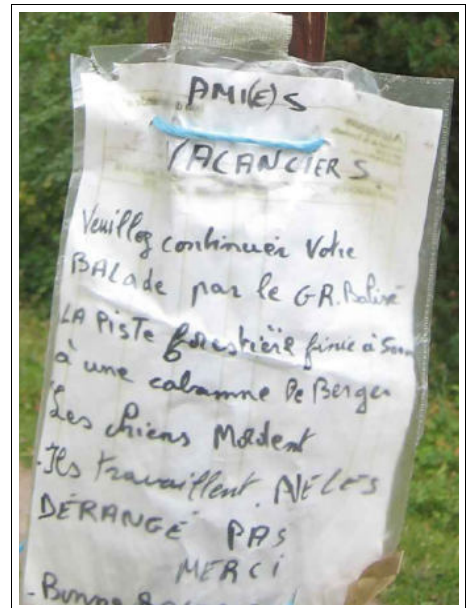 AMI(E)S
VACANCIERS
Veuillez continuer Votre
BALade par le GR. Balisé
LA Piste forestière finie à 500m
à une cabamne De Berger
Les chiens Mordent
- Ils travaillent. NE LES
DÉRANGÉ PAS
MERCI
- Bonne